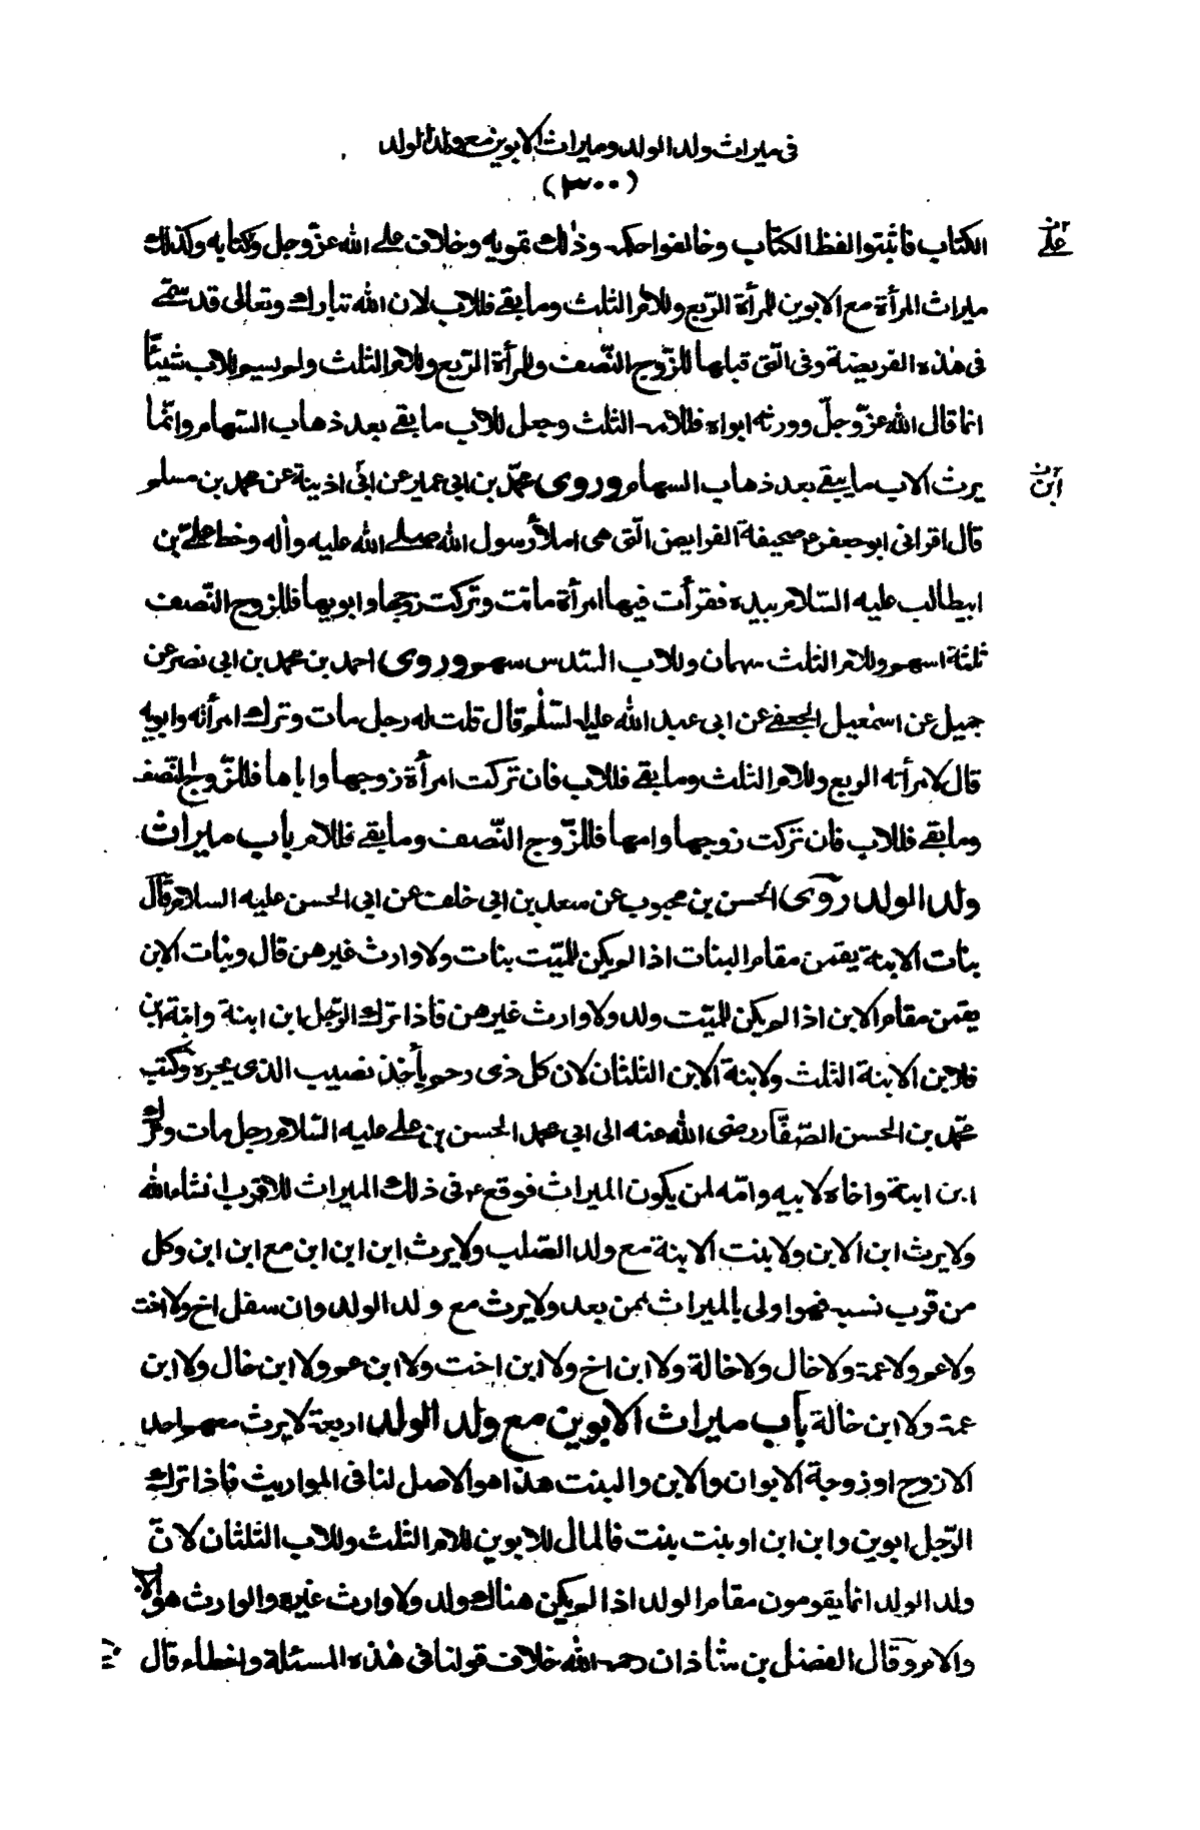 فى ميراث ولد الولد وميراث الابوين مع ولد الولد
(٣٠٠)
الكتاب فاثبتوا لفظ الكتاب وخالفوا حكمه وذلك تمويه وخلاف على الله عزّ وجل وكتابه وكذلك
ميراث المرأة مع الابوين للمرأة الرّبع وللام الثلث وما بقى فللاب لان الله تبارك وتعالى قد سمّى
فى هذه الفريضة وفى الّتى قبلها للزّوج النّصف وللمرأة الرّبع وللام الثلث ولم يسم للاب شيئاً
انما قال الله عزّ وجلّ وورثه ابواه فلامه الثلث وجعل للاب ما بقى بعد ذهاب السّهام وانّما
يرث الاب ما يبقى بعد ذهاب السهام وروى محمّد بن ابى عمير عن ابى اذينة عن محمد بن مسلم
قال اقرانى ابو جعفر ع صحيفة الفرايض الّتى هى املأ رسول الله صلى الله عليه وآله وخط علىّ بن
ابيطالب عليه السّلام بيده فقرأت فيها امرأة ماتت وتركت زوجها وابويها فللزوج النّصف
ثلثة اسهم وللام الثلث سهمان وللاب السّدس سهم وروى احمد بن محمد بن ابى نصر عن
جميل عن اسمعيل الجعفى عن ابى عبد الله عليه السّلم قال قلت له رجل مات وترك امرأته وابويه
قال لامرأته الربع وللام الثلث وما بقى فللاب فان تركت امرأة زوجها واباها فللزّوج النّصف
وما بقى فللاب فان تركت زوجها وامها فللزّوج النّصف وما بقى فللام باب ميراث
ولد الولد روى الحسن بن محبوب عن سعد بن ابى خلف عن ابى الحسن عليه السلام قال
بنات الابنة يقمن مقام البنات اذا لم يكن للميّت بنات ولا وارث غيرهن قال وبنات الابن
يقمن مقام الابن اذا لم يكن للميّت ولد ولا وارث غيرهن فاذا ترك الرّجل ابن ابنة وابنة ابن
فلابن الابنة الثلث ولابنة الابن الثلثان لان كل ذى رحم يأخذ نصيب الذى يجره وكتب
محمّد بن الحسن الصّفّار رضى الله عنه الى ابى محمد الحسن بن على عليه السّلام رجل مات وترك
ابن ابنة واخاه لابيه وامّه لمن يكون الميراث فوقع ع فى ذلك الميراث للاقرب انشاء الله
ولا يرث ابن الابن ولا بنت الابنة مع ولد الصّلب ولا يرث ابن ابن ابن مع ابن ابن وكل
من قرب نسبه فهو اولى بالميراث ممن بعد ولا يرث مع ولد الولد وان سفل اخ ولا اخت
ولا عم ولا عمة ولا خال ولا خالة ولا ابن اخ ولا ابن اخت ولا ابن عم ولا ابن خال ولا ابن
عمة ولا ابن خالة باب ميراث الابوين مع ولد الولد اربعة لا يرث معهم احد
الا زوج او زوجة الابوان والابن والبنت هذا هو الاصل لنا فى المواريث فاذا ترك
الرّجل ابوين وابن ابن او بنت بنت فالمال للابوين للام الثلث وللاب الثلثان لانّ
ولد الولد انما يقومون مقام الولد اذا لم يكن هناك ولد ولا وارث غيره والوارث هو الاب
والام وقال الفضل بن شاذان رحمه الله خلاف قولنا فى هذه المسئلة واخطاء قال